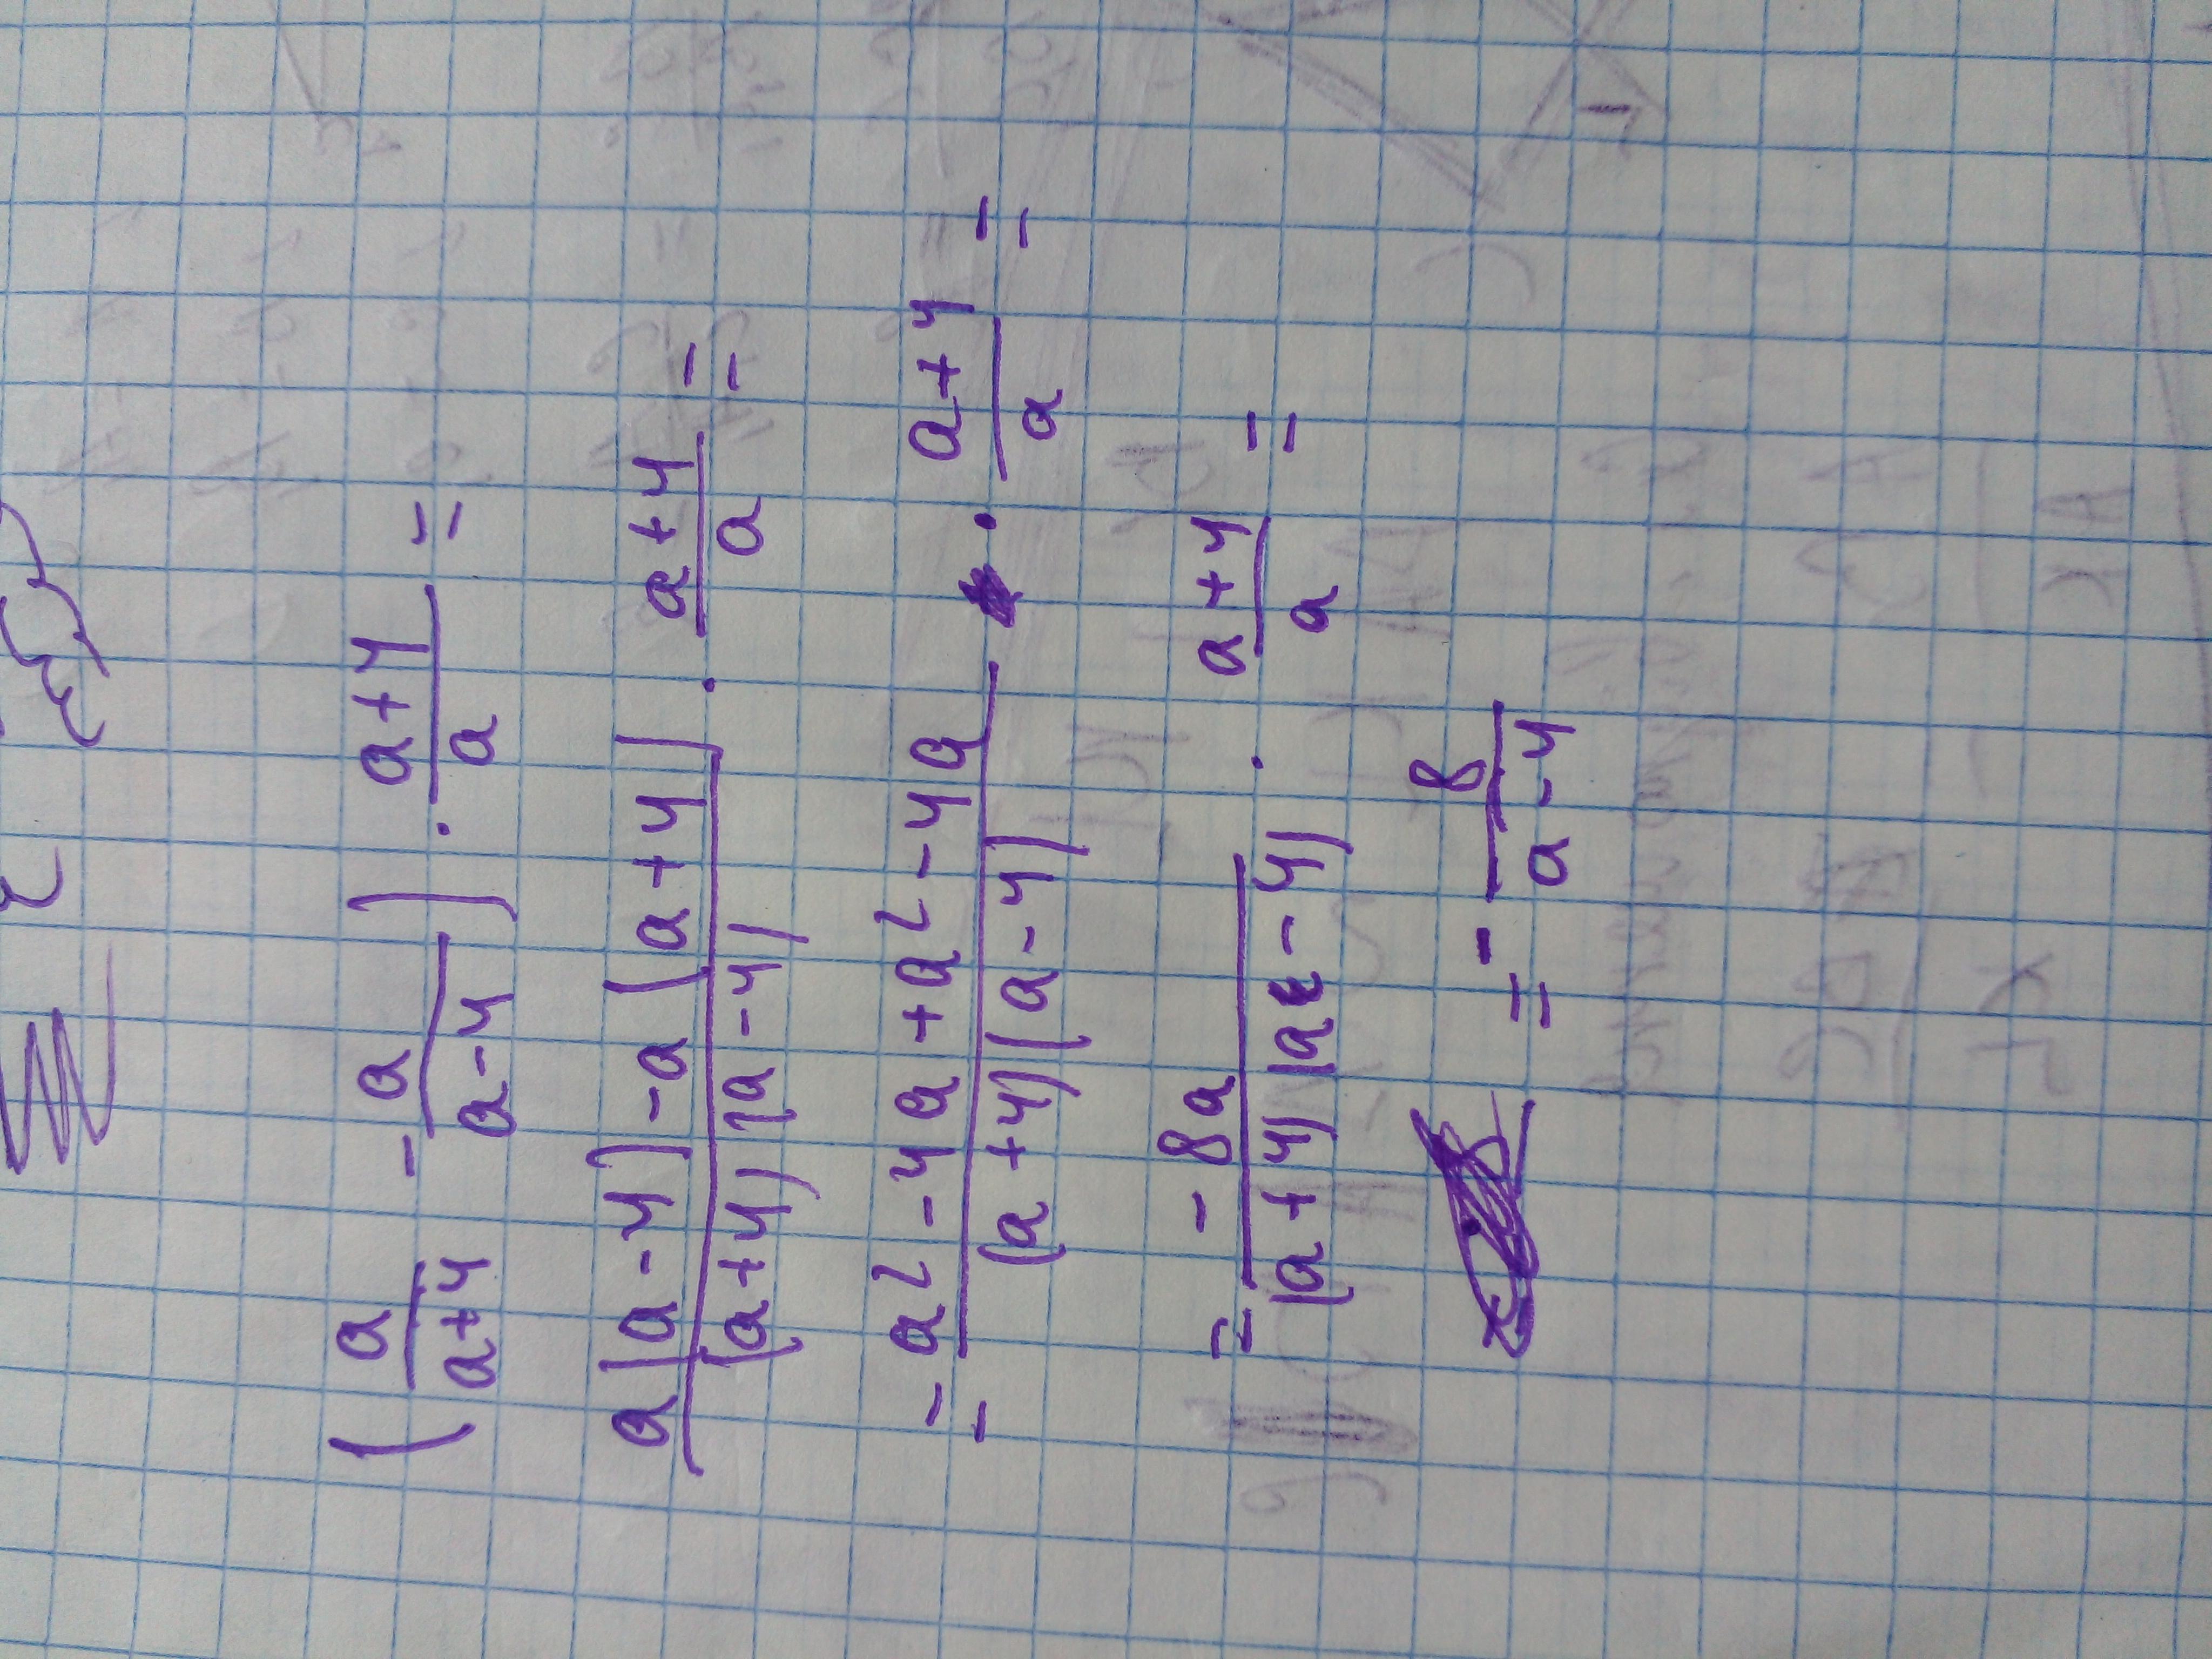 (a/(a+4) - a/(a-4)) · (a+4)/a =
(a(a-4)-a(a+4))/((a+4)(a-4)) · (a+4)/a =
= (a²-4a+a²-4a)/((a+4)(a-4)) · (a+4)/a =
= (-8a)/((a+4)(a-4)) · (a+4)/a =
= - 8/(a-4)